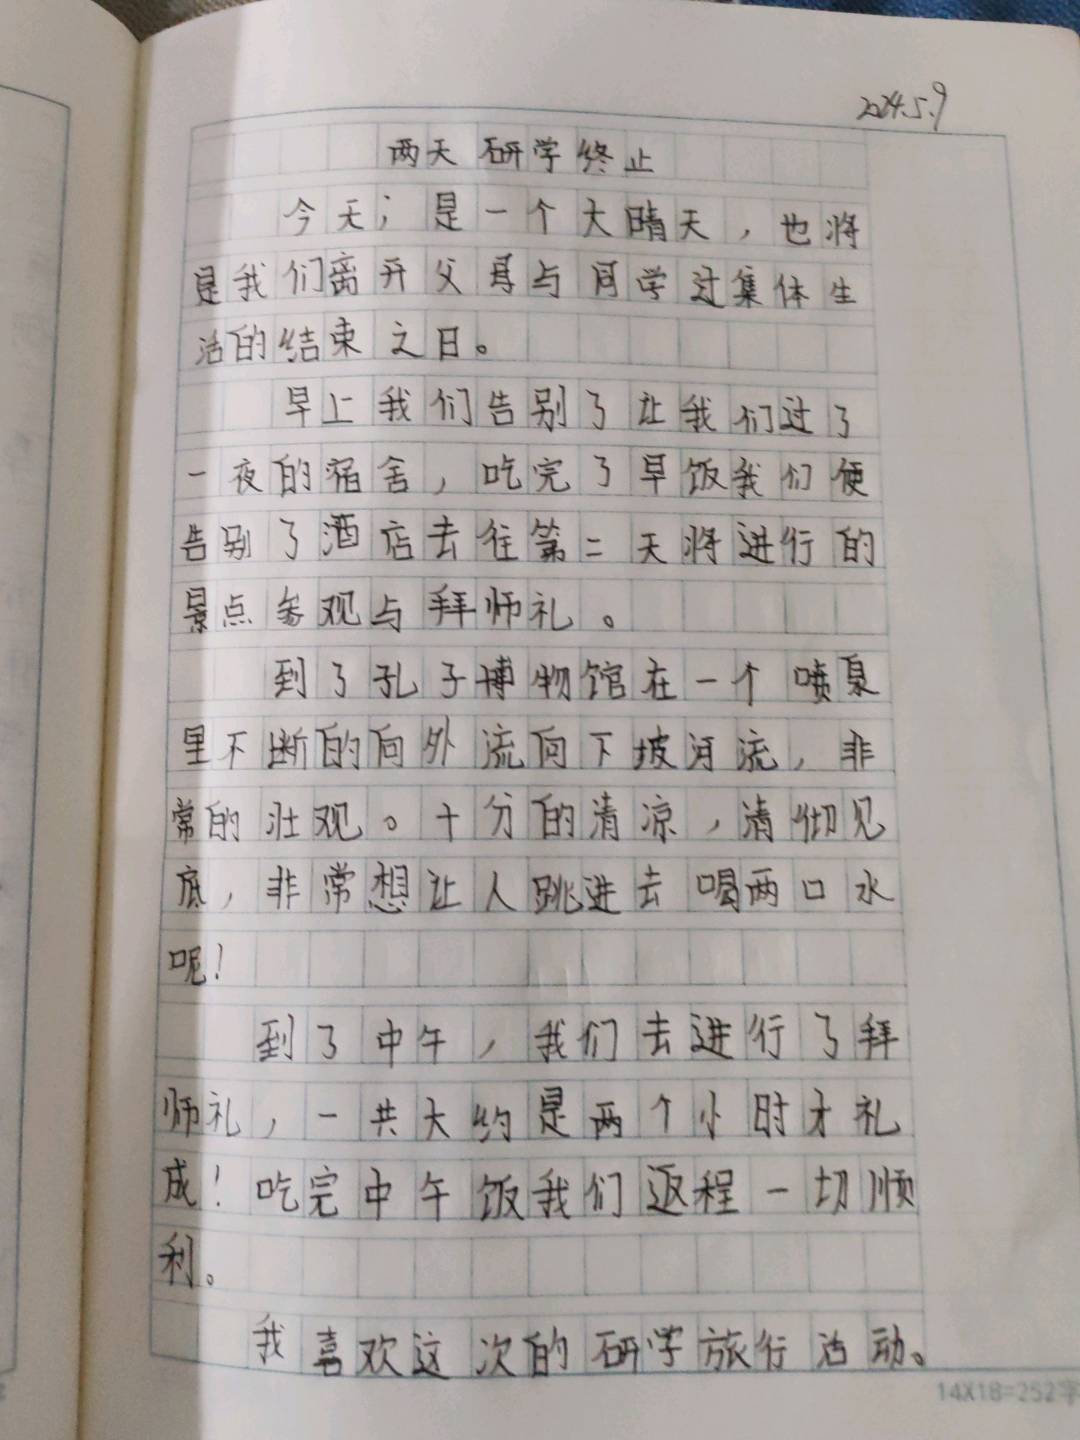 2024.5.9
两天研学终止
今天；是一个大晴天，也将
是我们离开父母与同学过集体生
活的结束之日。
早上我们告别了让我们过了
一夜的宿舍，吃完了早饭我们便
告别了酒店去往第二天将进行的
景点参观与拜师礼。
到了孔子博物馆在一个喷泉
里不断的向外流向下坡河流，非
常的壮观。十分的清凉，清彻见
底，非常想让人跳进去喝两口水
呢！
到了中午，我们去进行了拜
师礼，一共大约是两个小时才礼
成！吃完中午饭我们返程一切顺
利。
我喜欢这次的研学旅行活动。
14X18=252字